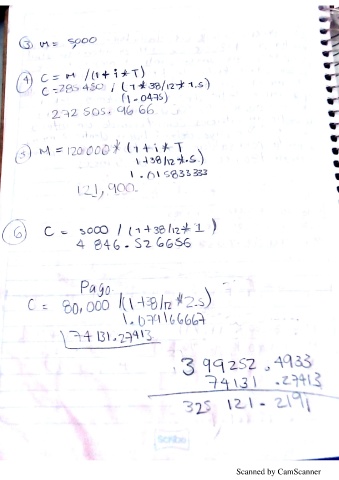 ③ M = 5000
④ C = M / (1 + i * T)
C = 285 450 / (1 * 38/12 * 1.5)
(1.0475)
272 505. 9666
M = 120 000 * (1 + i * T
1 + 38/12 * .5)
1.015833333
121,900.
⑥ C = 5000 / (1 + 38/12 * 1)
4 846. 526656
Pago
C = 80,000 / (1 + 38/12 * 2.5)
1.079166667
74131.27413
399252.4933
74131.27413
325 121. 2191
scribe
Scanned by CamScanner